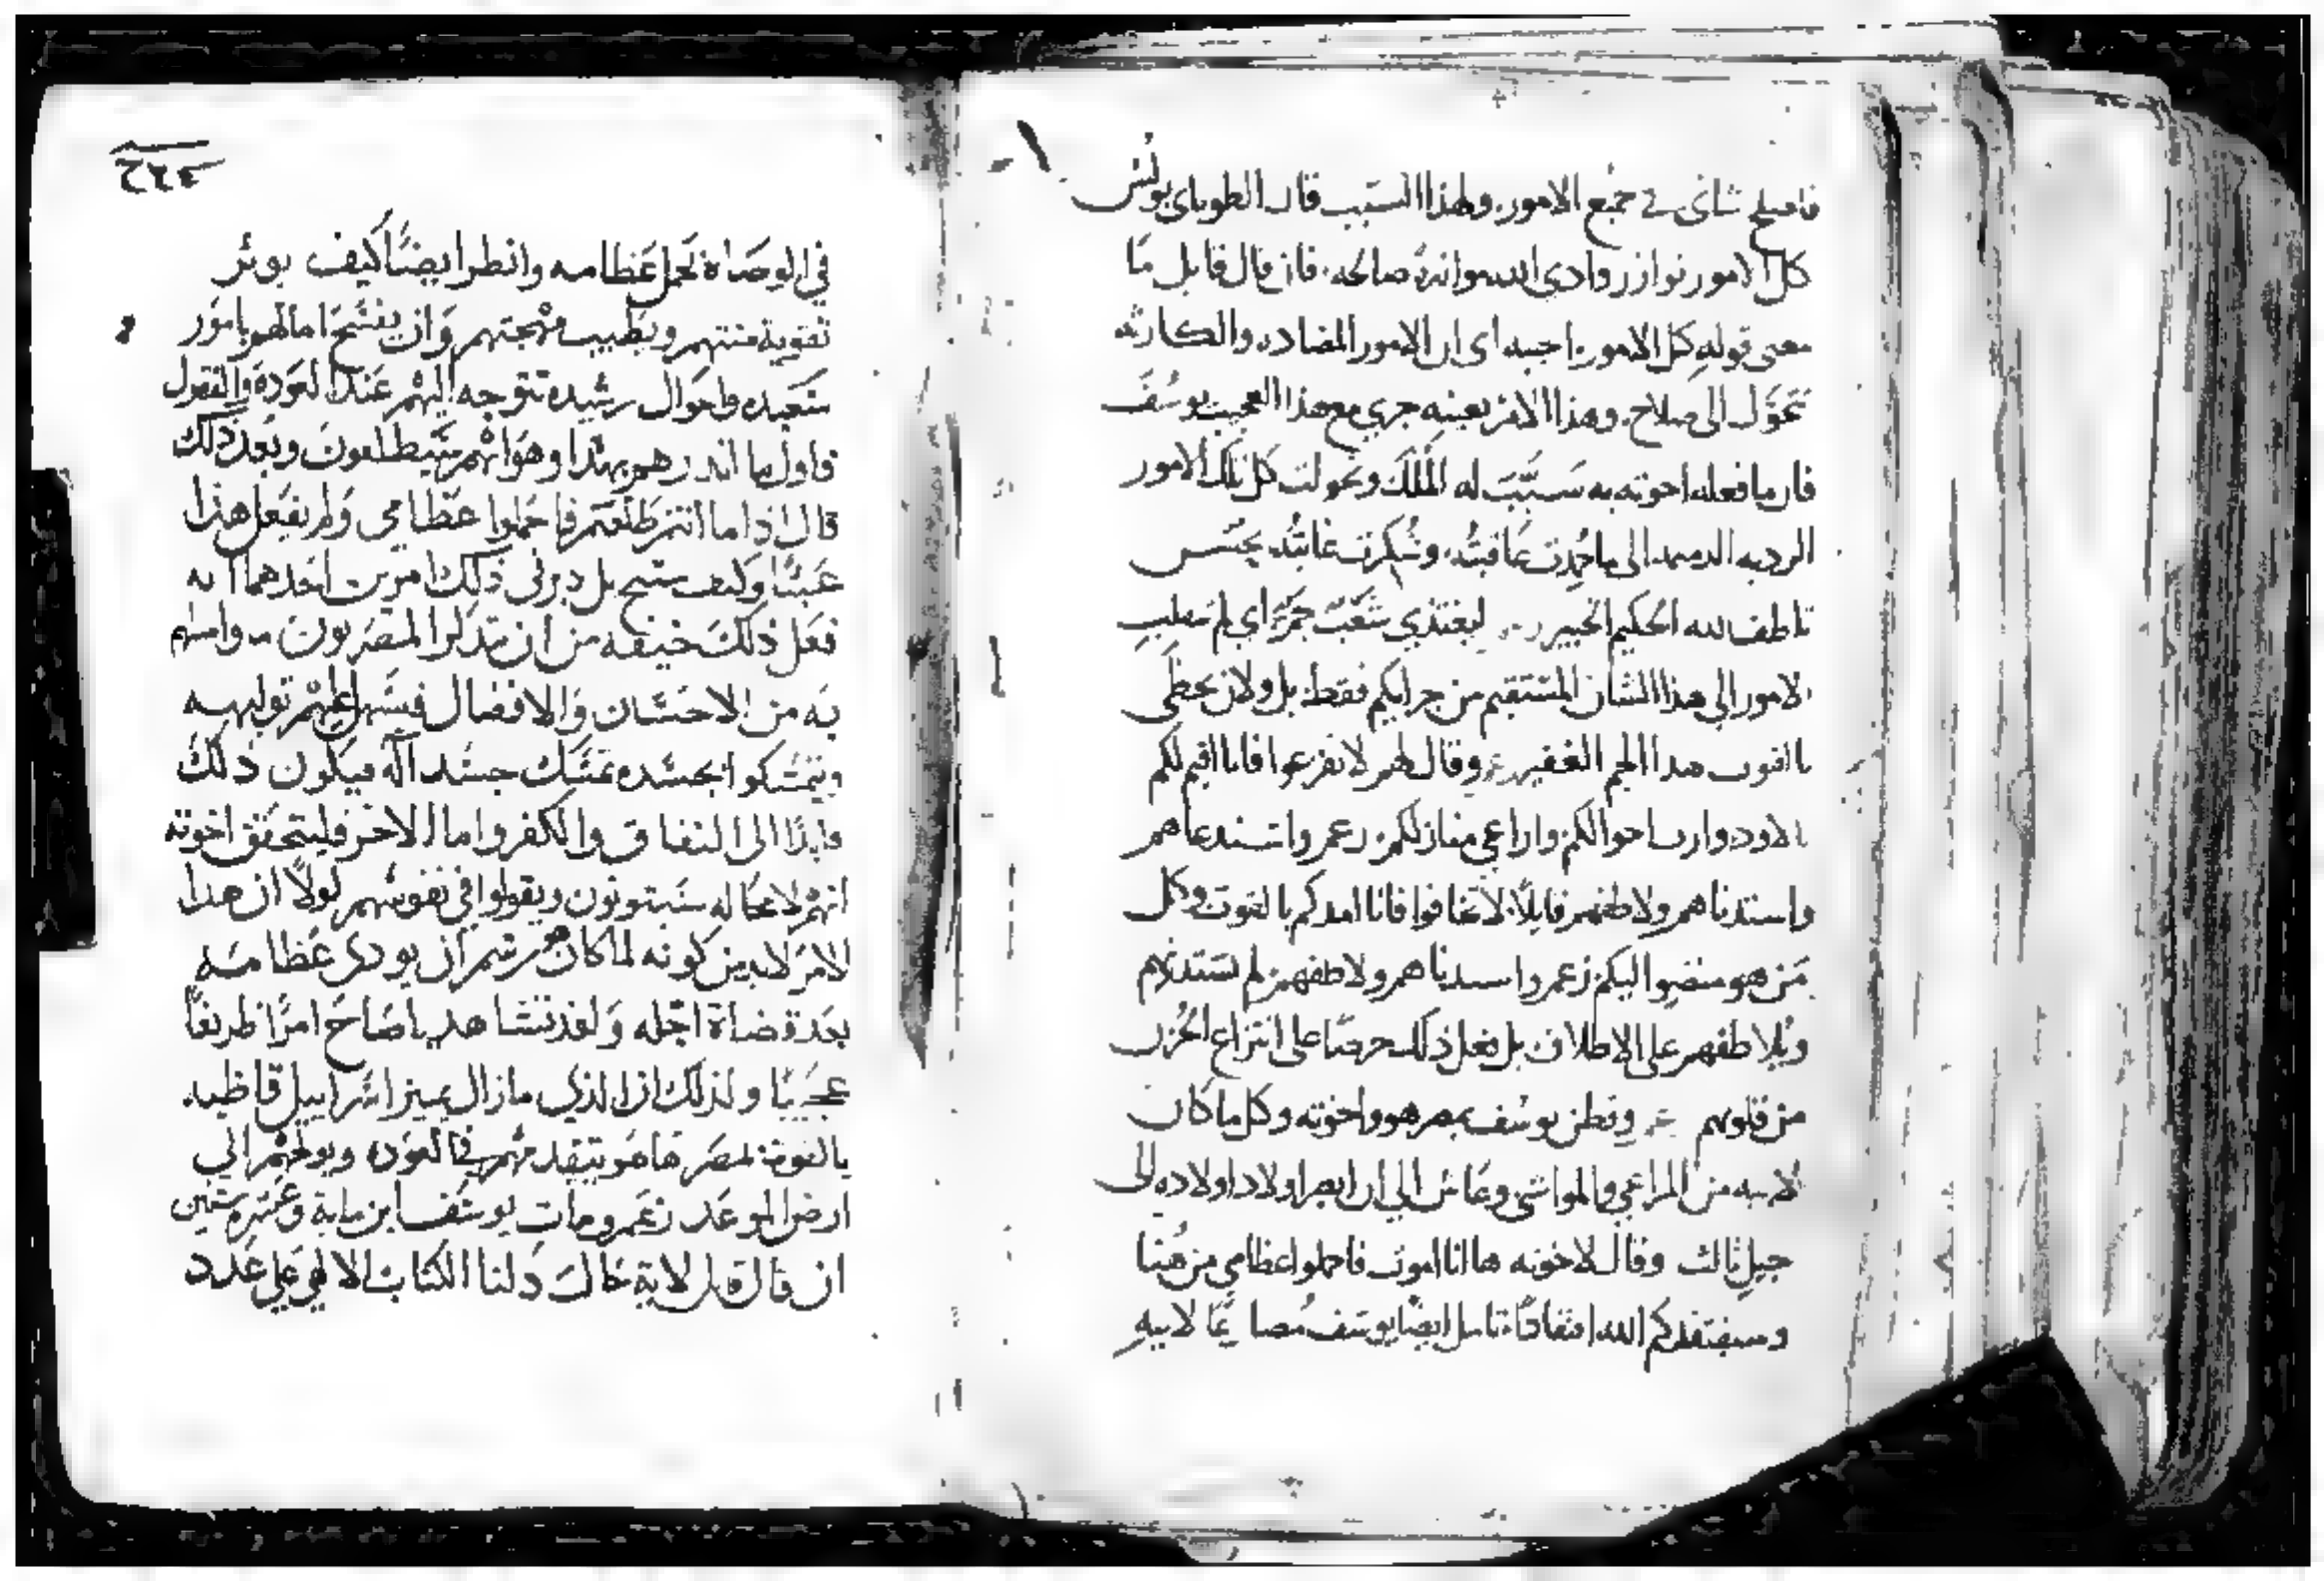 فاصلح شانى فى جميع الامور. ولهذا السبب قال الطوباى بولس
كل الامور توازر وادى الله موازرة صالحه. فان قال قايل ما
معنى قوله كل الامور اجبه اى ان الامور المضاده والكارثه
تحوّل الى صلاح. وهذا الامر بعينه جري مع هذا العجيب يوسف
فان ما فعله اخوته به سبّب له الملك وتحولت كل تلك الامور
الرديه الى ما حُمدت عاقبته. وشكرت غايته بحسن
تاطف الله الحكيم الخبير ليغتذي شعب جمّ اي لم تنقلب
الامور الى هذا الشان المستقيم من جرايكم فقط بل ولان يحظى
بالقوت هذا الجم الغفير وقال لهم لا تفزعوا فانا اقيم لكم
الاود وارب احوالكم واراعي منازلكم زعم واستدعاهم
واستدناهم ولاطفهم قايلاً لا تخافوا فانا امدكم بالقوت وكل
من هو منضوا اليكم زعم واستدناهم ولاطفهم لم يستدنهم
ويُلاطفهم على الاطلاق بل فعل ذلك حرصًا على انتزاع الحُزن
من قلوبهم وقطن يوسف بمصر هو واخوته وكل ما كان
لابيه من المراعي والمواشى وعاش الى ان ابصر اولاد اولاده الى
جيل ثالث وقال لاخوته هاانا اموت فاحملوا عظامي من هُنا
وسيفتقدكم الله افتقادًا. تامل ايضًا يوسف مُضاهيًا لابيه
ح٢٤
في الوصاة بحمل عظامه وانظر ايضًا كيف يوثر
تقوية منتهم ويطيب مهجتهم وان يفسّح امالهم بامور
سعيده واحوال رشيده تتوجه اليهم عند العودة والقفول
فاول ما انذرهم بهذا وهو انهم سيطلعون وبعد ذلك
قال اذا ما انتم طلعتم فاحملوا عظامى ولم يفعل هذا
عبثًا وكيف سنح بل دبر فى ذلك امرين احدهما انه
فعل ذلك خيفه من ان يتذكر المصريون ما واساهم
به من الاحسان والافضال فيسهل عليهم توليهه
ويتمسكوا بجسده تمسك جسد اله فيكون ذلك
داعيًا الى النفاق والكفر واما الاخر فليتحقق اخوته
انهم لا محاله سيتوبون ويقولوا في نفوسهم لولا ان هذا
الامر لابد من كونه لما كان رسم ان يودى عظامه
بعد قضاة اجله ولقد تشاهد ياصاح امرًا طريفًا
عجيبًا ولذلك ان الذي مازال يمير اسراييل قاطبه
بالقوت بمصر ها هو يتقدمهم في العوده ويولجهم الي
ارض الموعد زعم ومات يوسف ابن ماية وعشر سنين
ان قال قايل لاية حال دلنا الكتاب الالهي على عدد